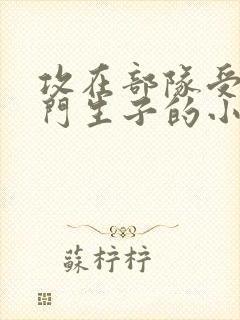 攻在部隊受
門生子的小
蘇柠柠